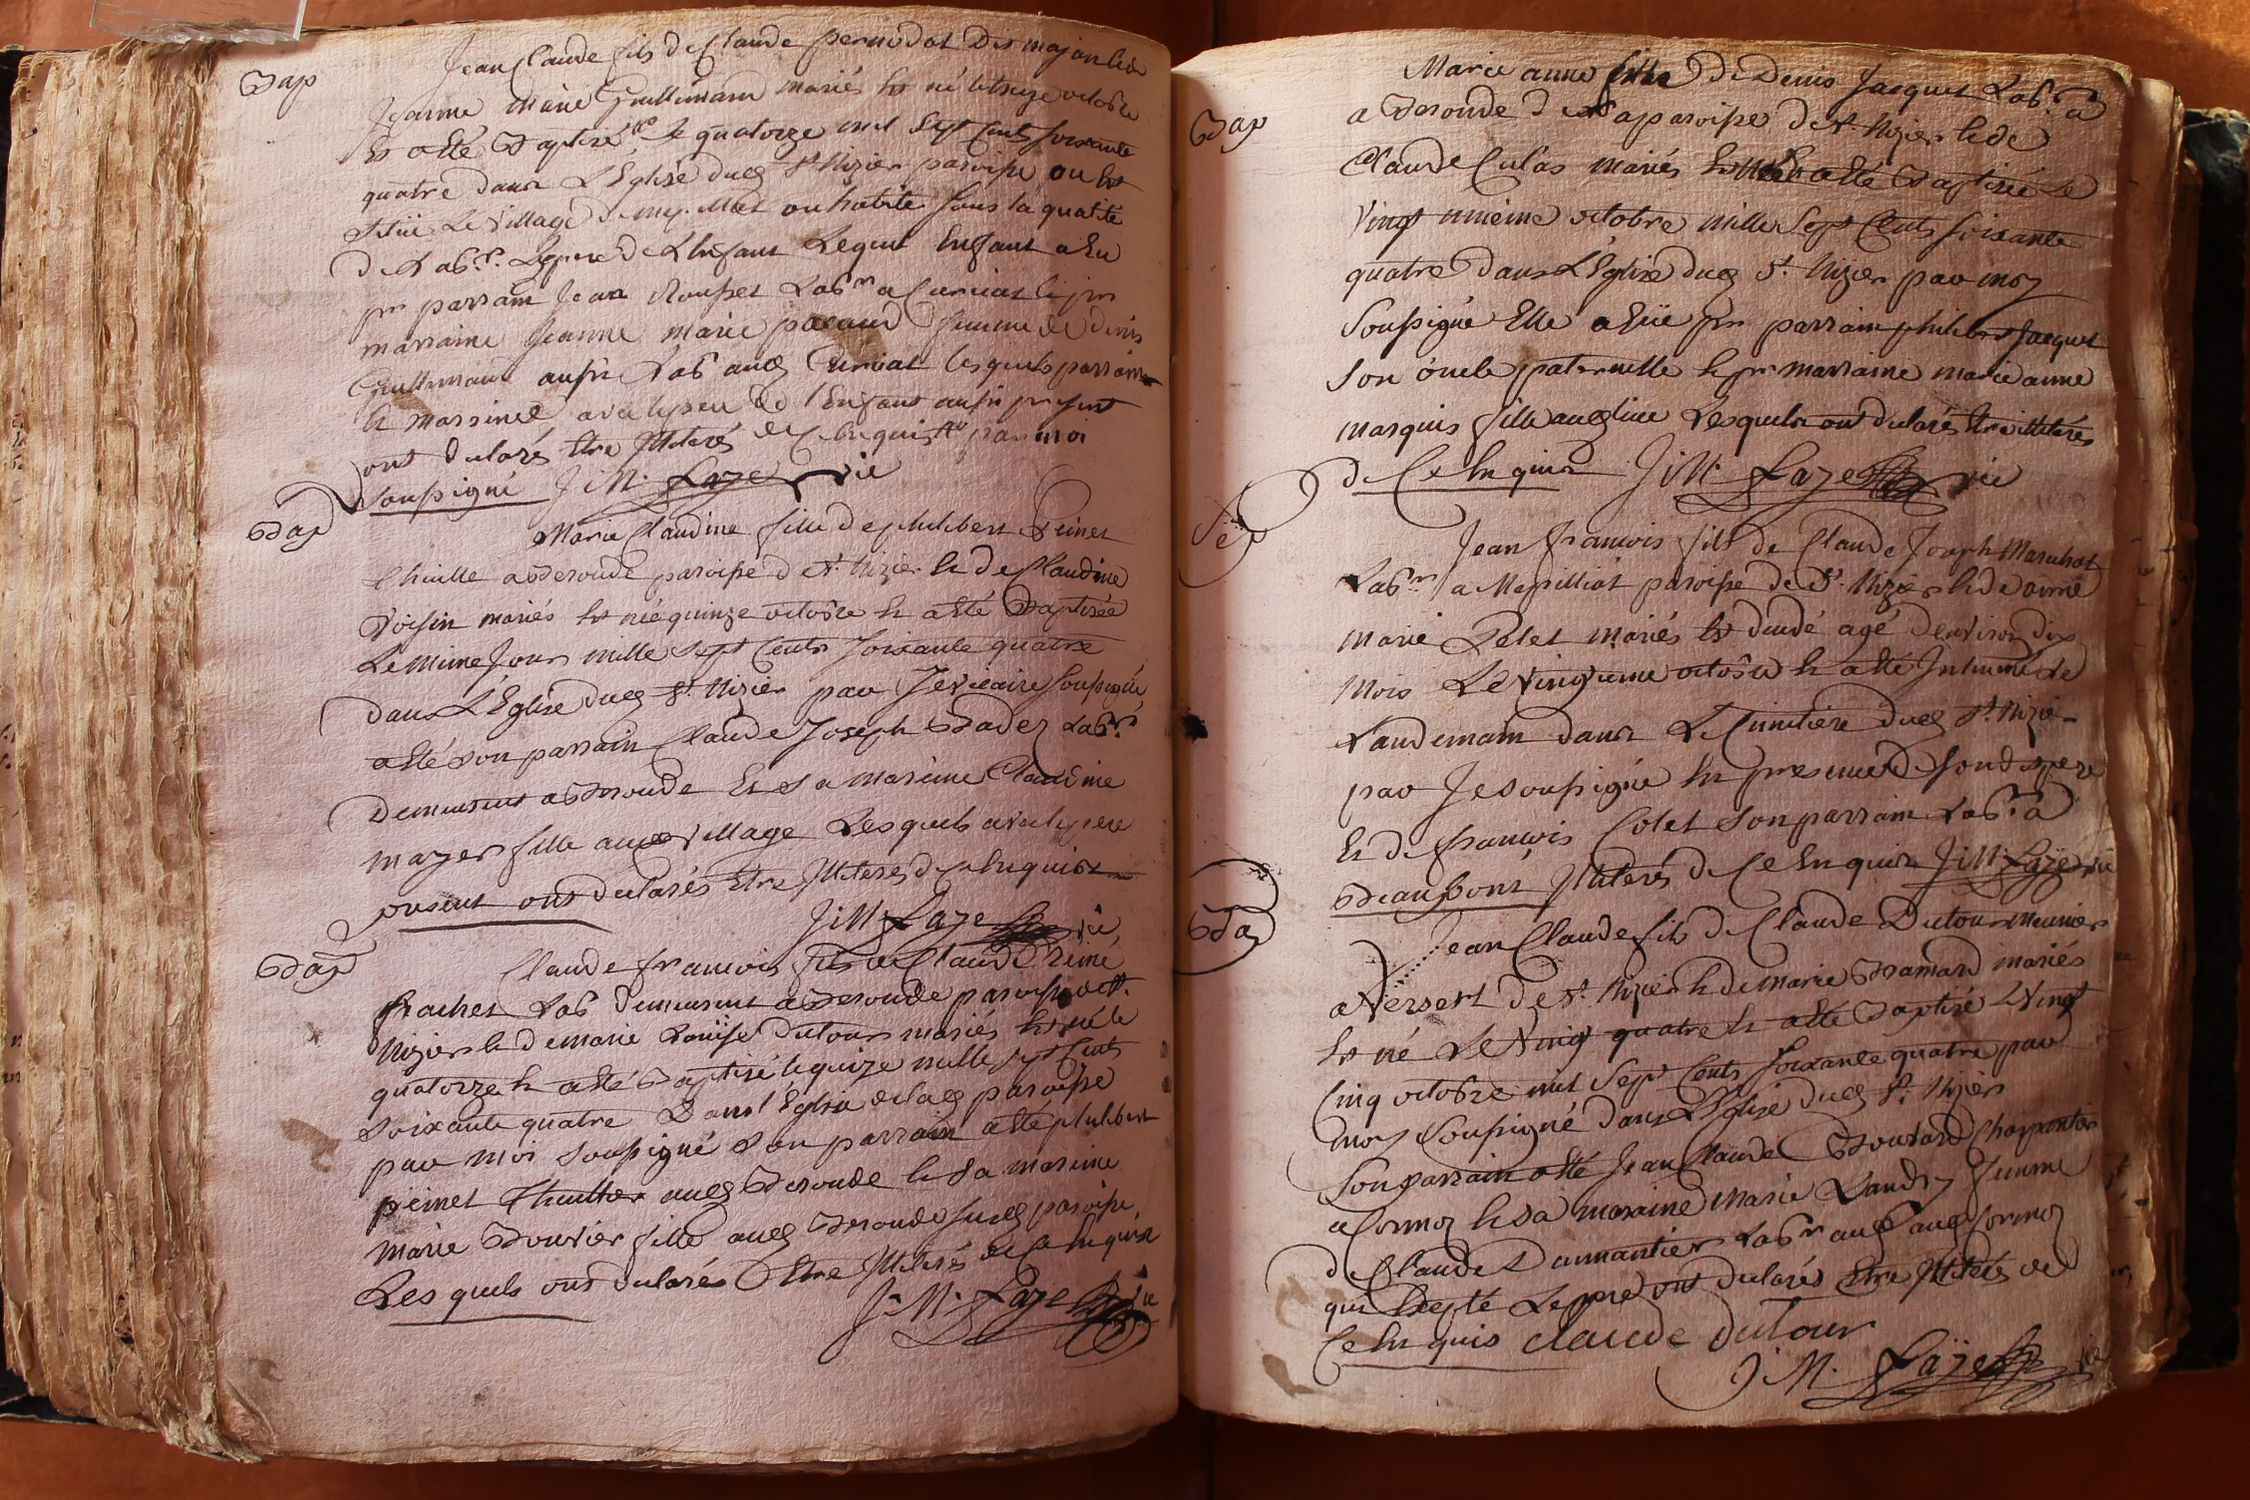 Bap
Jean Claude fils de Claude pernodat Des majonlide
Jeanne Marie Guillemain mariés Est né letreize octobre
Et a Eté Baptisé le quatorze mil Sept Cents soixante
quatre dans L'Eglise dud St Nizier paroisse ou Est
Situé Le village ou habite sous la qualité
de Labr. Le pere de L'Enfant Lequel Enfant a Eu
pr parrain Jean Rousset Labr a Curciat et pr
marraine Jeanne Marie pacaud femme de denis
Guillemain aussi Lab aud Curciat lesquels parrain
Et marrine avec le pere de l'Enfant aussi present
ont declarés Etre Illiterés de Ce Enquis par moi
soussigné J: M: Laye vic
Bap
Marie Claudine fille de philibert peinet
thuille a Beronde paroisse de St. Nizier Et de Claudine
Voisin mariés Est née quinze octobre Et a Eté Baptisée
Le meme Jour mille Sept Cents Soixante quatre
dans L'Eglise dud St. Nizier par Je vicaire soussigné
a Eté Son parrain Claude Joseph Badez Labr.
demeurant a Beronde Et Sa marrine Claudine
mazer fille aud village Lesquels avec le pere
present ont declarés Etre Illiterés de Ce Enquis
J: M: Laye vic
Bap
Claude francois fils de Claude Rémé
frachet Lab demeurant a Beronde paroisse de St.
Nizier Et de Marie Louise Dutour mariés Est né le
quatorze Et a Eté Baptisé le quize mille sept Cents
Soixante quatre Dans l'Eglise de lad paroisse
par moi soussigné Son parrain a Eté philibert
peinet thuillier aud Beronde Et Sa marine
Marie Bouvier fille aud Beronde sud paroisse
Les quels ont declarés Etre Illiterés de Ce Enquis
J. M. Laye vic
Bap
Marie anne fille De Denis Jacquet Labr. a
a Beronde De La paroisse de St. Nizier Et de
Claude Culas mariés Est Née Et a Eté Baptisée Le
Vingt unieme octobre mille Sept Cents soixante
quatre dans L'Eglise dud St. Nizier par moy
Soussigné Elle a Eüe pr parrain philibert Jacquet
Son oncle paternelle Et pr marraine marie anne
marquis fille aud lieu Lesquels ont declarés Etre illiterés
de Ce Enquis J: M: Laye vic
Jean francois fils de Claude Joseph Marechat
Labr. a Mepilliat paroisse de St. Nizier Et de anne
Marie Pelet mariés Est decedé agé d'environ dix
Mois Le vingtieme octobre Et a Eté Inhumé le
Landemain dans Le Cimetière dud St. Nizier
par Je soussigné En presence de son dit pere
Et de francois Colet Son parrain Labr. a
Beaupont Illiterés de Ce Enquis J: M: Laye vic
Bap
Jean Claude fils de Claude Dutour meunier
a Versert de St. Nizier Et de Marie Bramard mariés
Est né Le vingt quatre Et a Eté Baptisé Le vingt
Cinq octobre mil Sept Cents Soixante quatre par
moy soussigné dans L'Eglise dud St. Nizier
Son parrain a Eté Jean Claude Bouvard Charpentier
a Cormoz Et Sa maraine Marie Landry femme
de Claude Damantier Labr aud Cormoz
qui Excepté Le pere ont declarés Etre Illiterés de
Ce Enquis claude dutour
J: M: Laye vic